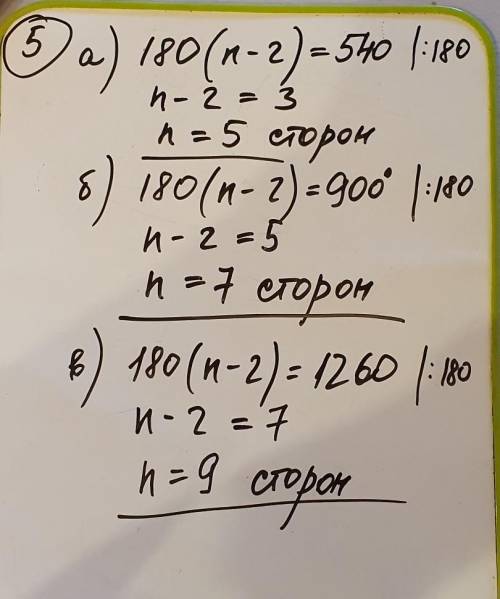 5 а) 180(n-2)=540 |:180
n-2 = 3
n = 5 сторон
б) 180(n-2)=900° |:180
n-2 = 5
n = 7 сторон
в) 180(n-2)=1260 |:180
n-2 = 7
n = 9 сторон